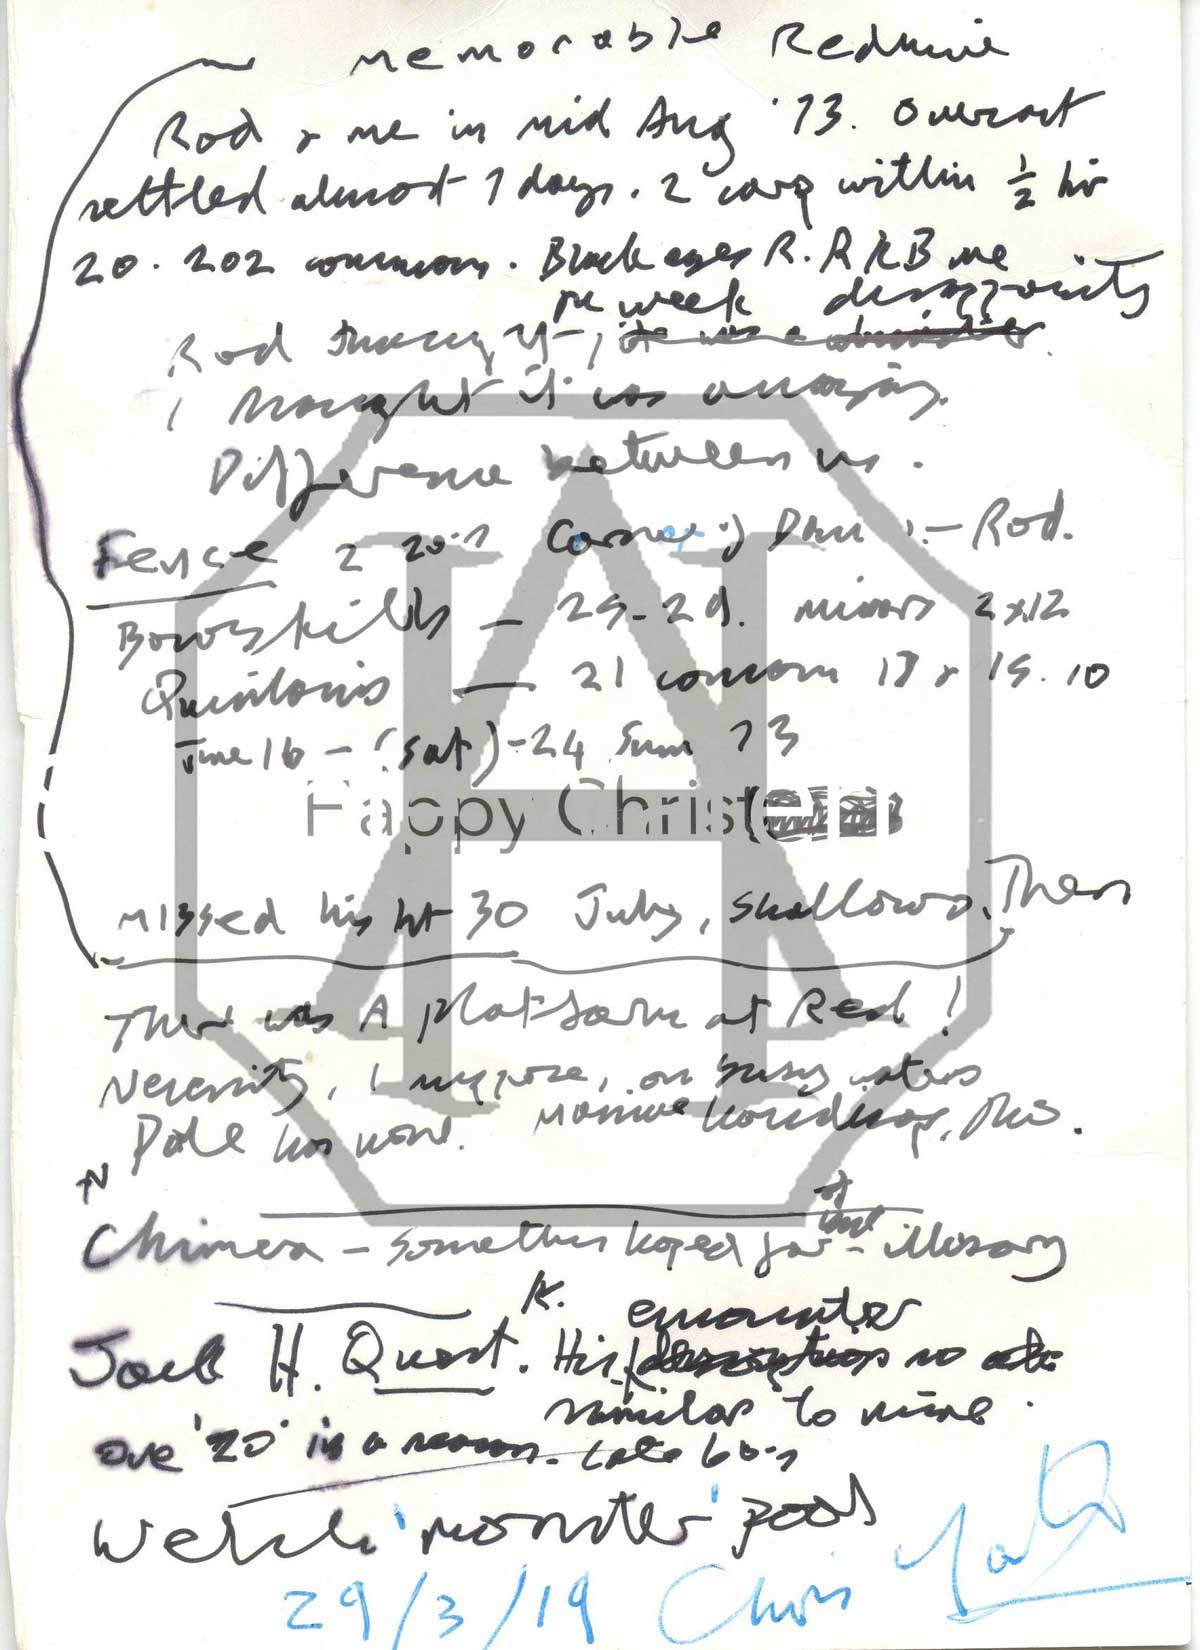 memorable Redmire
Rod & me in mid Aug '73. Overcast
settled almost 7 days. 2 carp within ½ hr
20. 202 commons. Black eyes R. R RB me
week disappointing
Rod
I thought it was amazing.
Difference between us.
Fence 2 20's Corner of Dam :- Rod.
Bowskills - 25-29. mirrors 2x12
Quinlans - 21 common 17 & 15.10
June 16 - (Sat) - 24 Sun 73
Happy Christ
Missed his hit 30 July, Shallows. Then
There was A platform at Red!
Necessity, I suppose, on busy waters
Pole has none. Massive
Chimera - Something hoped for - illusory
K. encounter
Jack H. Quest. His no
similar to mine.
One '20' in a season. Late 60's
Welsh 'monster' pool
29/3/19 Chris Yates